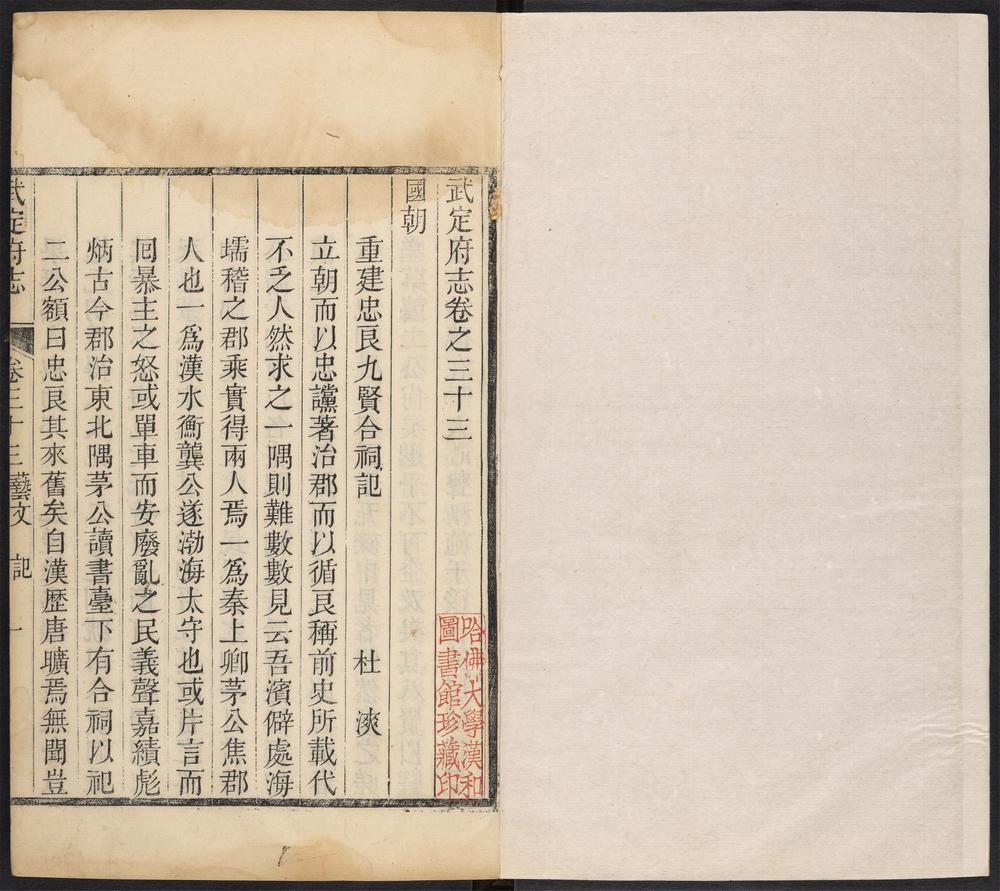 武定府志卷之三十三
國朝
重建忠良九賢合祠記 杜漺
立朝而以忠讜著治郡而以循良稱前史所載代
不乏人然求之一隅則難數數見云吾濱僻處海
壖稽之郡乘實得兩人焉一爲秦上卿茅公焦郡
人也一爲漢水衡龔公遂渤海太守也或片言而
囘暴主之怒或單車而安廢亂之民義聲嘉績彪
炳古今郡治東北隅茅公讀書臺下有合祠以祀
二公額曰忠良其來舊矣自漢歷唐曠焉無聞豈
武定府志 卷三十三 藝文 記 一
哈佛大學漢和
圖書館珍藏印